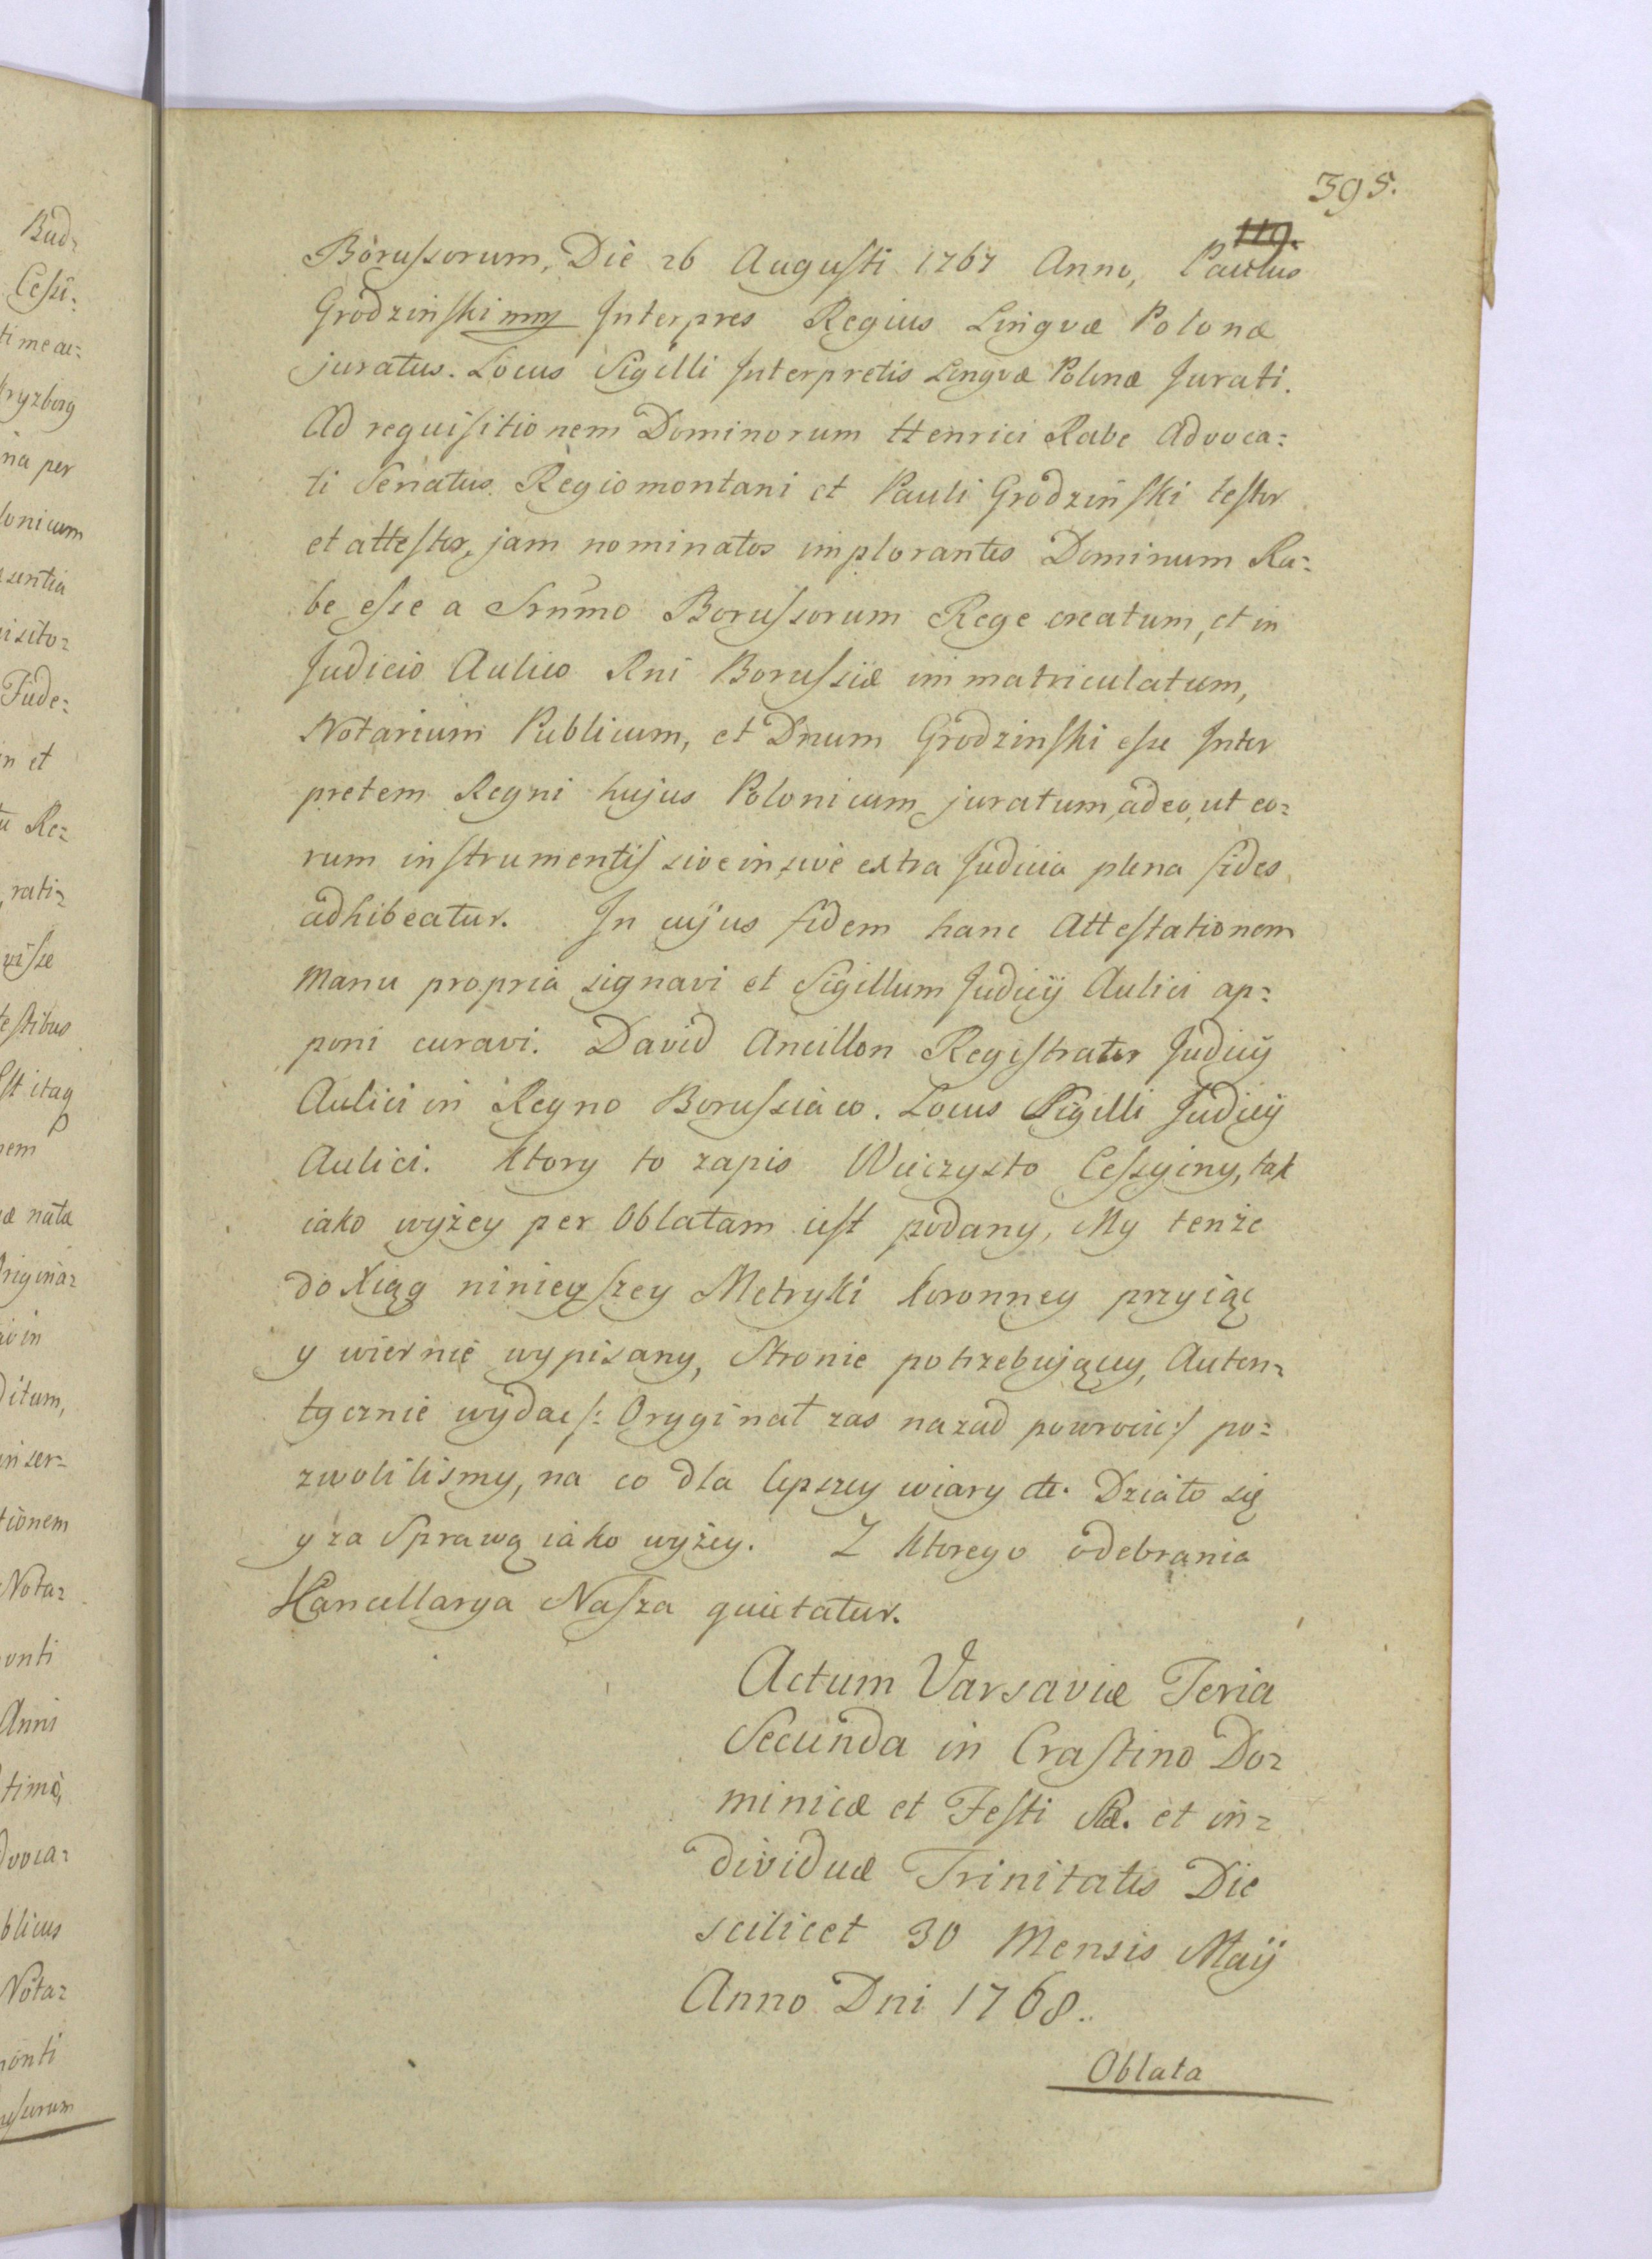 395.
119.
Borussorum, Die 26 Augusti 1767 Anno, Paulus
Grodzinski mp Interpres Regius Lingvæ Polonæ
juratus. Locus Sigilli Interpretis Lingvæ Polonæ Jurati.
Ad requisitionem Dominorum Henrici Rabe Advoca=
ti Senatus Regiomontani et Pauli Grodzinski testor
et attestor, jam nominatos implorantes Dominum Ra=
be esse a Srnmo Borussorum Rege creatum, et in
Judicio Aulico Rni Borussiæ immatriculatum,
Notarium Publicum, et Dnum Grodzinski esse Inter
pretem Regni hujus Polonicum juratum, adeo, ut eo=
rum instrumentis sive in sive extra Judicia plena fides
adhibeatur. In cujus fidem hanc Attestationem
manu propria signavi et Sigillum Judicij Aulici ap=
poni curavi. David Ancillon Registrator Judicij
Aulici in Regno Borussiaco. Locus Sigilli Judicij
Aulici. Ktory to zapis Wieczysto Cessyiny, tak
iako wyżey per Oblatam iest podany, My tenże
do Xiąg ninieyszey Metryki Koronney przyiąc
y wiernie wypisany, Stronie potrzebuiącey, Auten=
tycznie wydac /: Oryginał zas nazad powrocic :/ po=
zwolilismy, na co dla lepszey wiary etc. Działo się
y za Sprawą iako wyżey. Z ktorego odebrania
Kancellarya Nasza quietatur.
Actum Varsaviæ Feria
Secunda in Crastino Do=
minicæ et Festi Stæ. et in=
dividuæ Trinitatis Die
scilicet 30 Mensis Maij
Anno Dni 1768.
Oblata